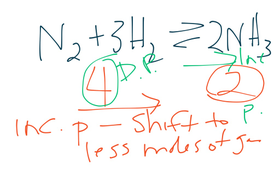 N₂+3H₂ ⇌ 2NH₃
D.P. Int
4 2
P.
Inc. p - Shift to
less moles of ga